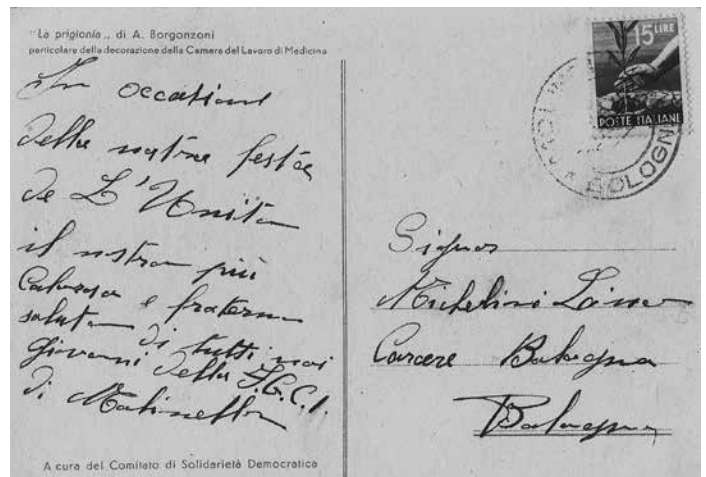 "La prigionia„ di A. Borgonzoni
particolare della decorazione della Camera del Lavoro di Medicina
In occasione
della nostra festa
de L'Unita
il nostro più
Caloroso e fraterno
saluto di tutti noi
Giovani della F.G.C.I.
di Molinella
A cura del Comitato di Solidarietà Democratica
15 LIRE
POSTE ITALIANE
BOLOGNA
Signor
Michelini Lino
Carcere Bologna
Bologna